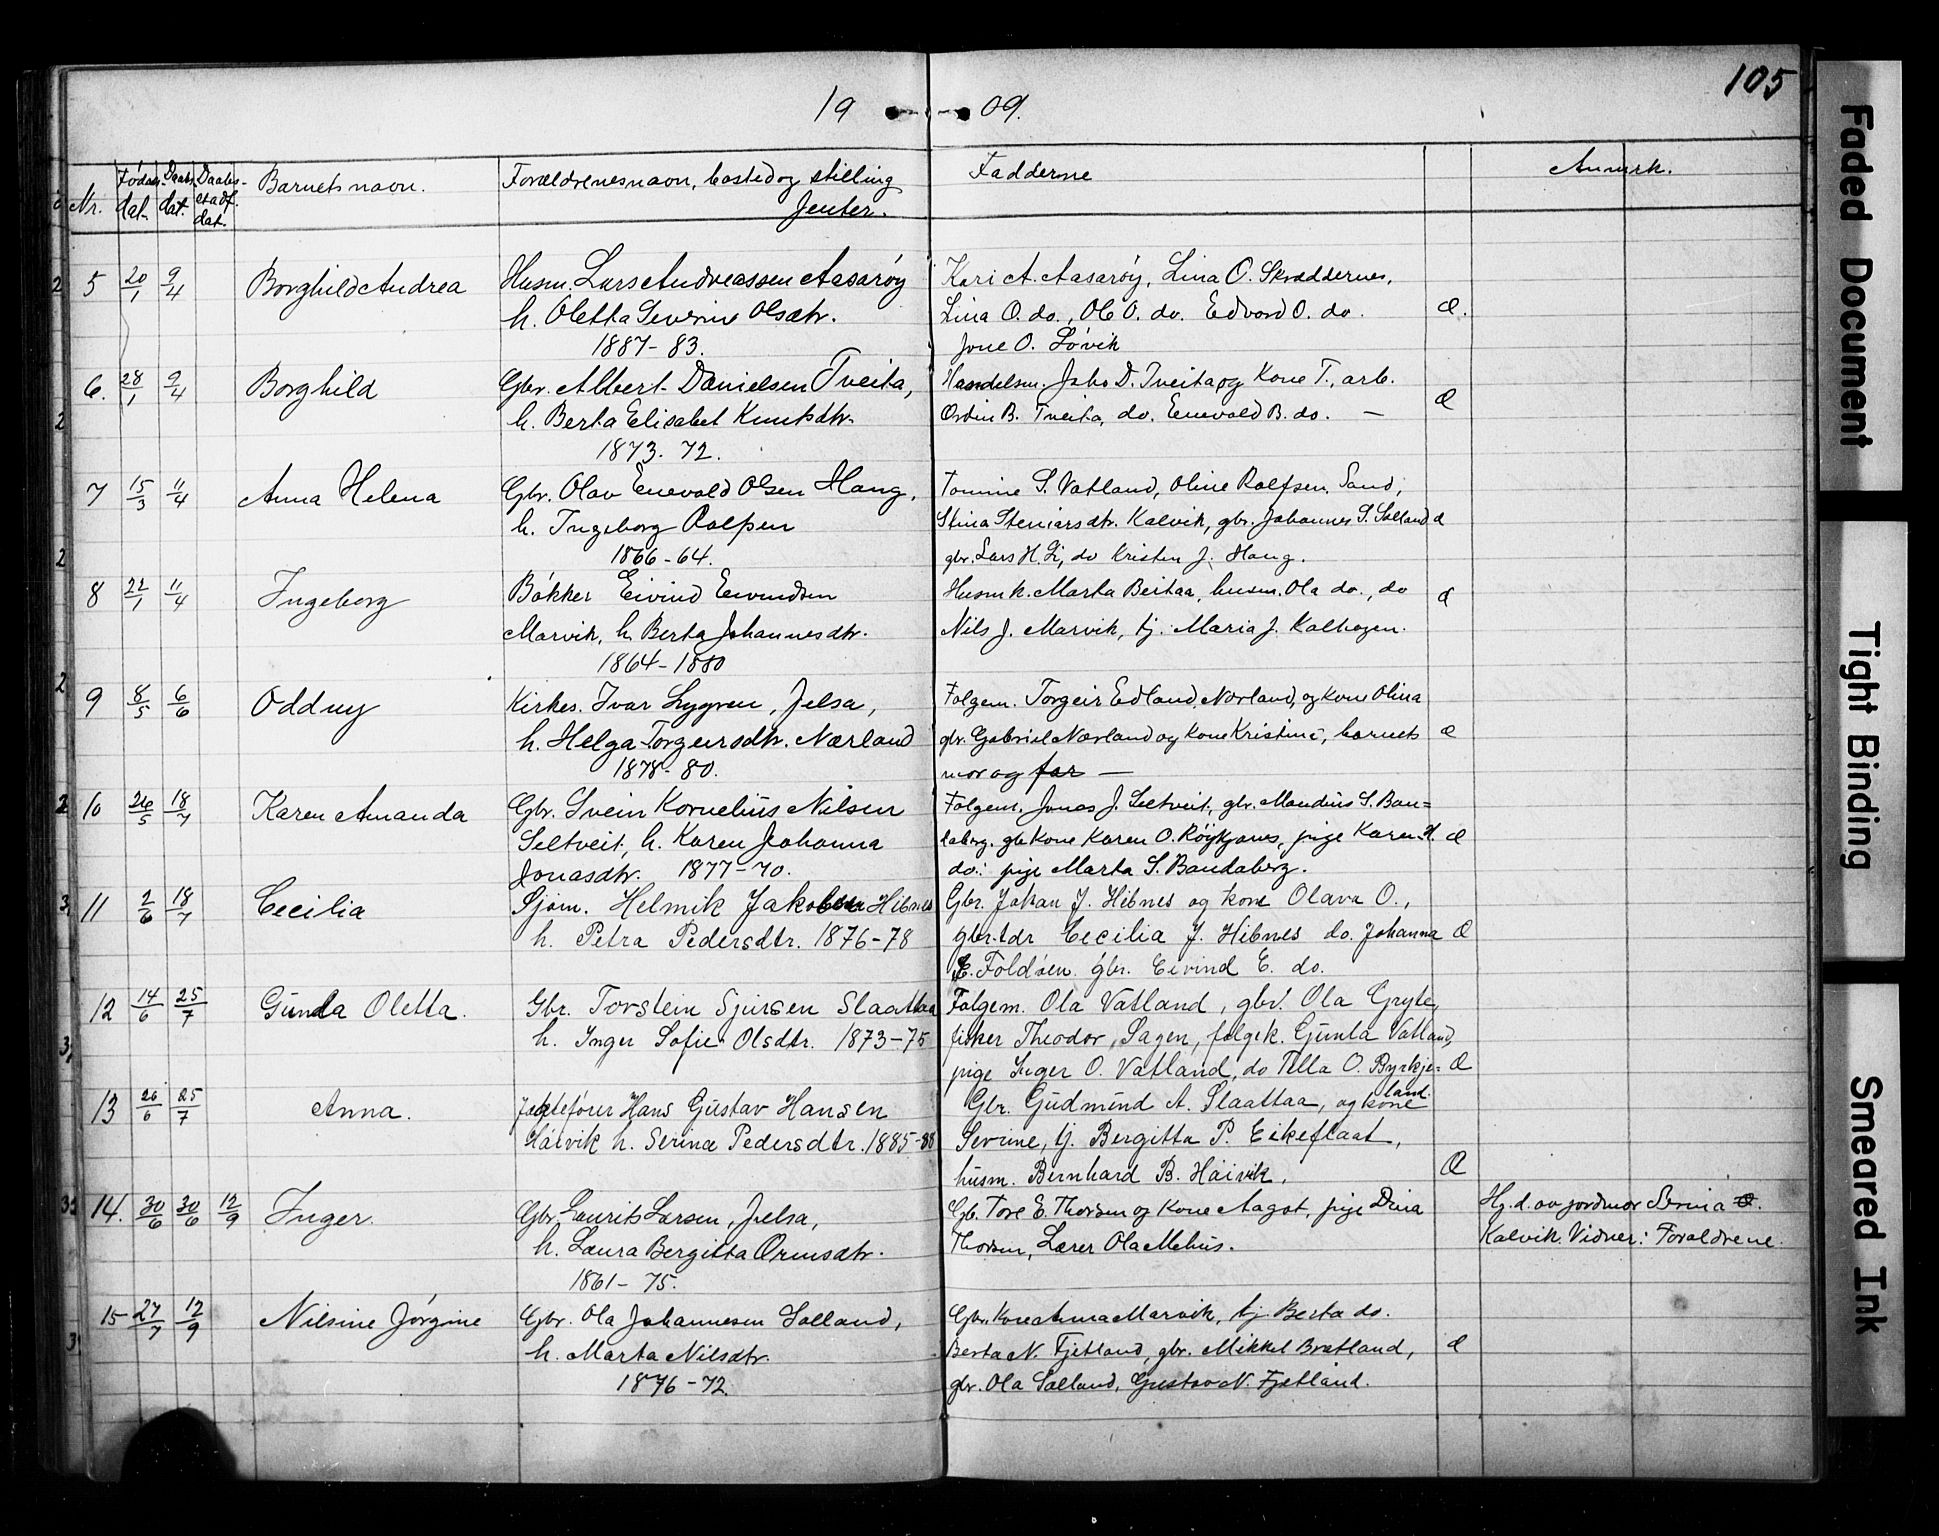 105
19 09.
Nr. Fødsels- dat. Daabs dat. Daabs- stadf. dat. Barnets navn. Forældrenes navn, bosted og stilling Fadderne Anmerk.
Jenter.
5 20/1 9/4 Borghild Andrea Husm. Lars Andreassen Aasarøy Kari A. Aasarøy, Lina O. Skræddernes,
h. Oletta Severine Olsdtr. Lina O. do., Ole O. do. Edvard O. do. Æ.
1887-83. Jone O. Løvik
6. 28/1 9/4 Borghild Gbr. Albert Danielsen Tveita, Handelsm. Jabo D. Tveita og Kone T., arb.
h. Berta Elisabet Knutsdtr. B. Tveita, do. Enevald B. do. — Æ
1873. 72.
7 15/3 11/4 Anna Helena Gbr. Olav Enevald Olsen Haug, Tomine S. Vatland, Oline Rolfsen, Sand,
h. Ingeborg Rolfsen Stina Steniarsdtr. Kalvik, gbr. Johannes S. Salland Æ
1866-64. gbr. Lars H. Li, do Kristen J. Haug.
8 22/1 11/4 Ingeborg Bøkker Eivind Eivindsen Husm k. Marta Beitaa, husm. Ola do., do Æ
Marvik, h. Berta Johannesdtr. Nils J. Marvik, tj. Maria J. Kalhagen.
1864-1880
9 8/5 6/6 Oddny Kirkes. Ivar Lygren, Jelsa, Folgem. Torgeir Edland, Nærland, og kone Olina
h. Helga Torgeirsdtr. Nærland gbr. Gabriel Nærland og Kone Kristine, barnets Æ
1878-80. mor og far —
10 26/5 18/7 Karen Amanda Gbr. Svein Kornelius Nilsen Folgem. Jonas J. Seltveit, gbr. Maudius S. Ban=
Seltveit, h. Karen Johanna daberg. gb kone Karen O. Røykjanes, pige Karen H. Æ
Jonasdtr. 1877-70. do: pige Marta S. Bandaberg.
11 2/6 18/7 Cecilia Sjøm. Helmik Jakobsen Hibnes Gbr. Johan J. Hibnes og kone Olava O.,
h. Petra Pedersdtr. 1876-78 gbr.tdr Cecilia J. Hibnes do. Johanna Æ
E. Foldøen. gbr. Eivind E. do.
12 14/6 25/7 Gunla Oletta. Gbr. Torstein Sjursen Slaattaa Folgem. Ola Vatland, gbr. Ola Gryte,
h. Inger Sofie Olsdtr. 1873-75 fisker Theodor Sagen, folgek. Gunla Vatland,
pige Inger O. Vatland, do Tella O. Byrkje= Æ
land.
13 26/6 25/7 Anna. Jagtefører Hans Gustav Hansen Gbr. Gudmund A. Slaattaa, og kone
Haivik h. Serine Pedersdtr. 1885-88 Severine, tj. Bergitta P. Eikeflaat,
husm. Bernhard B. Haivik. Æ
14. 30/6 30/6 12/9 Inger. Gbr. Laurits Larsen, Jelsa, Gb. Tore E. Thorsen og Kone Aagot, pige Dina Hj. d. av jordmor Serina
h. Laura Bergitta Ormsdtr. Thorsen, Lærer Ola Mehus. Kalvik. Vidner: Forældrene.
1861-75.
15 27/7 12/9 Nilsine Jørgine Gbr. Ola Johannesen Salland, Gbr. Kone Anna Marvik, tj. Berta do.
h. Marta Nilsdtr. Berta N. Fjetland, gbr. Mikkel Bratland, Æ
1876-72. gbr. Ola Salland, Gustav N. Fjetland.
Faded Document
Tight Binding
Smeared Ink